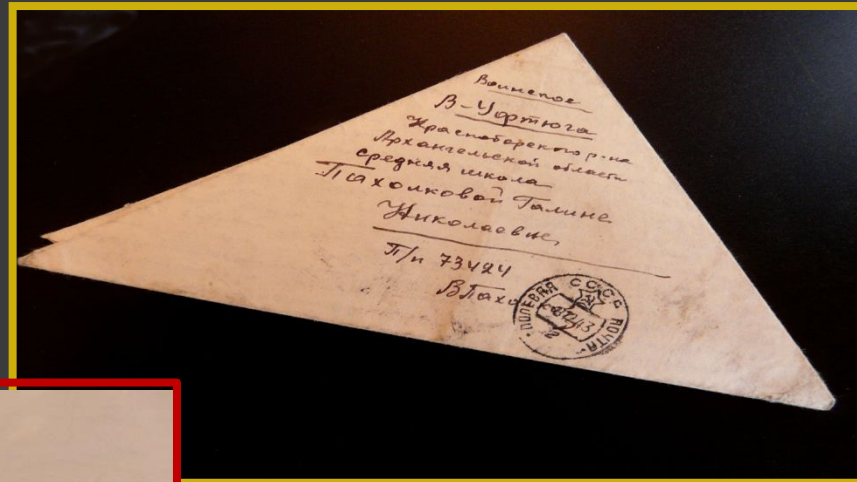 Воинское
В-Уфтюга
Красноборского р-на
Архангельской области
средняя школа
Пахолковой Галине
Николаевне
П/п 73424
ВПахо
СССР
ПОЛЕВАЯ ПОЧТА